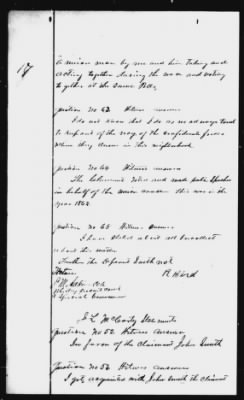 17
A union man by me and him Talking and
acting together during the war and voting
together at the same Polls
Question No 63 Witness answers
I do not know that I do as no
to of the way of the confederate forces
when they in this neighborhood
Question No 64 Witness answers
The Claimant Voted and made public Speeches
in behalf of the union cause this was in the
year 186
Question No 65 Witness Answer
I have Stated about all I recollect
about this matter
Further the Deponent Saith not
R Word
Special Commissioner
S L McCarty Statement
Question No 52 Witness Answer
In favor of the Claimant John Smith
Question No 52 Witness answers
I got acquainted with John Smith the Claimant